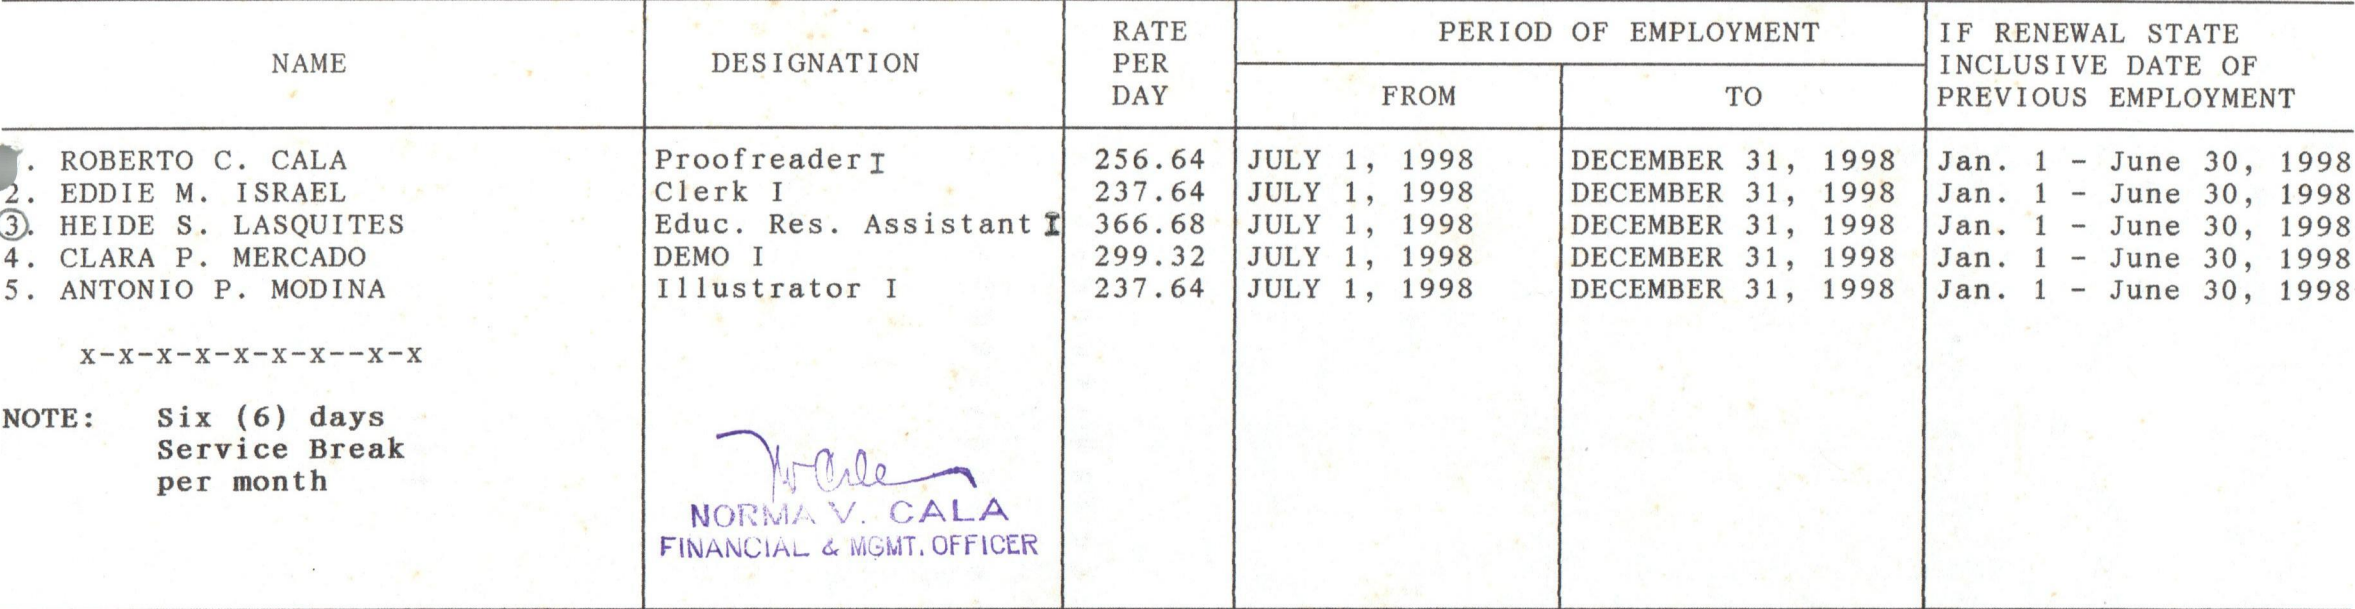 NAME DESIGNATION RATE PER DAY PERIOD OF EMPLOYMENT FROM TO IF RENEWAL STATE INCLUSIVE DATE OF PREVIOUS EMPLOYMENT
. ROBERTO C. CALA Proofreader I 256.64 JULY 1, 1998 DECEMBER 31, 1998 Jan. 1 - June 30, 1998
2. EDDIE M. ISRAEL Clerk I 237.64 JULY 1, 1998 DECEMBER 31, 1998 Jan. 1 - June 30, 1998
3. HEIDE S. LASQUITES Educ. Res. Assistant I 366.68 JULY 1, 1998 DECEMBER 31, 1998 Jan. 1 - June 30, 1998
4. CLARA P. MERCADO DEMO I 299.32 JULY 1, 1998 DECEMBER 31, 1998 Jan. 1 - June 30, 1998
5. ANTONIO P. MODINA Illustrator I 237.64 JULY 1, 1998 DECEMBER 31, 1998 Jan. 1 - June 30, 1998
x-x-x-x-x-x-x--x-x
NOTE: Six (6) days
Service Break
per month
NORMA V. CALA
FINANCIAL & MGMT. OFFICER